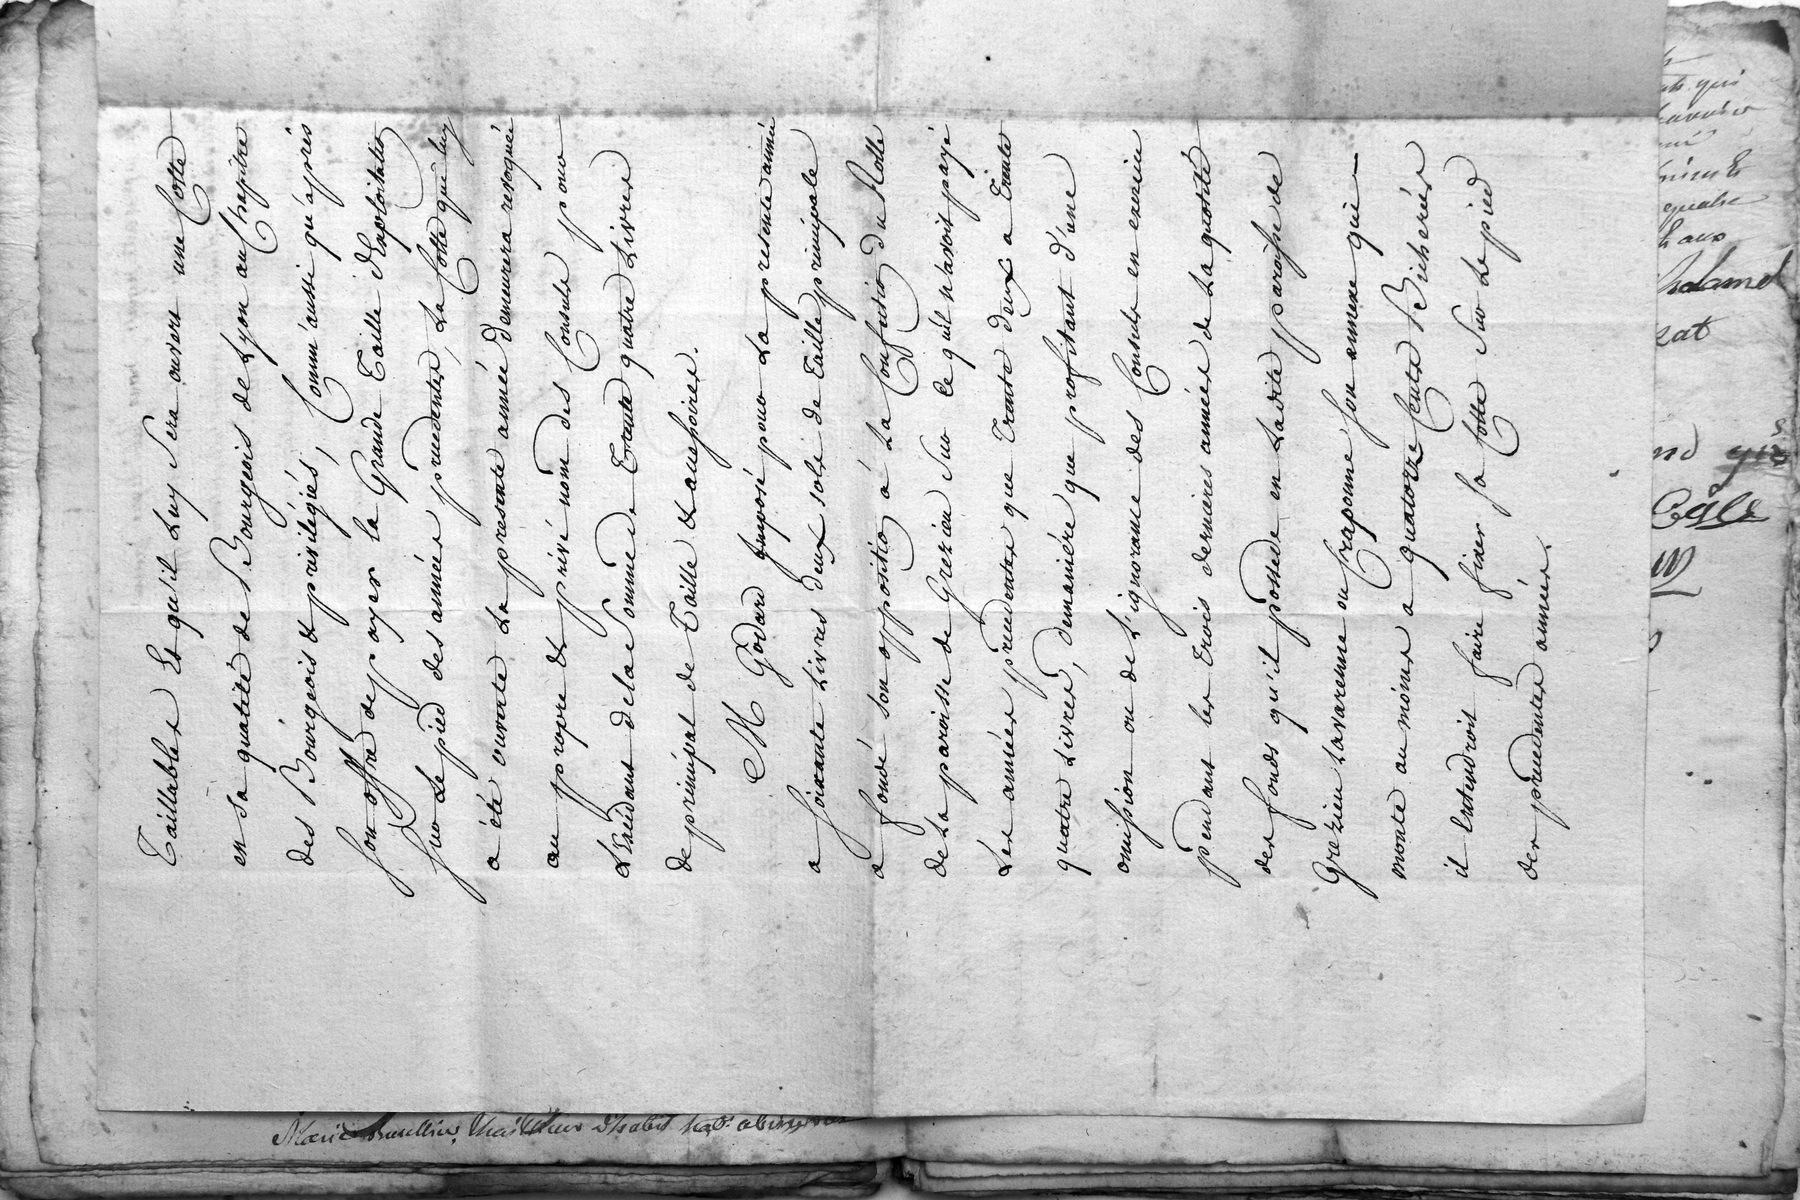 Taillables Et qu'il Luy Sera ouvert une Cotte
en sa qualité de Bourgeois de Lyon au Chapitre
des Bourgeois & privilégiés, Comm'aussi qu'après
son offre de payer la Grande Taille d'Exploitation
sur Le pied des années precedentes, La Cotte que luy
a été ouverte La presente année demeurera revoquée
au propre & privé nom des Consuls pour
& Excedant de la Somme de Trente quatre Livres
de principal de Taille & accessoires.
M Godard Imposé pour La presente année
a soixante Livres deux sols de Taille principale
a fondé son opposition à La Confection du Rolle
de La paroisse de Grezieu Sur Ce qu'il n'avoit payé
Les années precedentes que Trente deux a Trente
quatre Livres, demanière que profitant d'une
omission ou de L'ignorance des Consuls en exercice
pendant les trois dernieres années de La quotité
des fonds qu'il possede en Ladite paroisse de
Grezieu Lavarenne ou Craponne son annexe qui
monte au moins a quatorze Cents Bicherées
il Entendroit faire fixer sa Cotte Sur Le pied
des precedentes années.
Marie
qui
quatre
ans